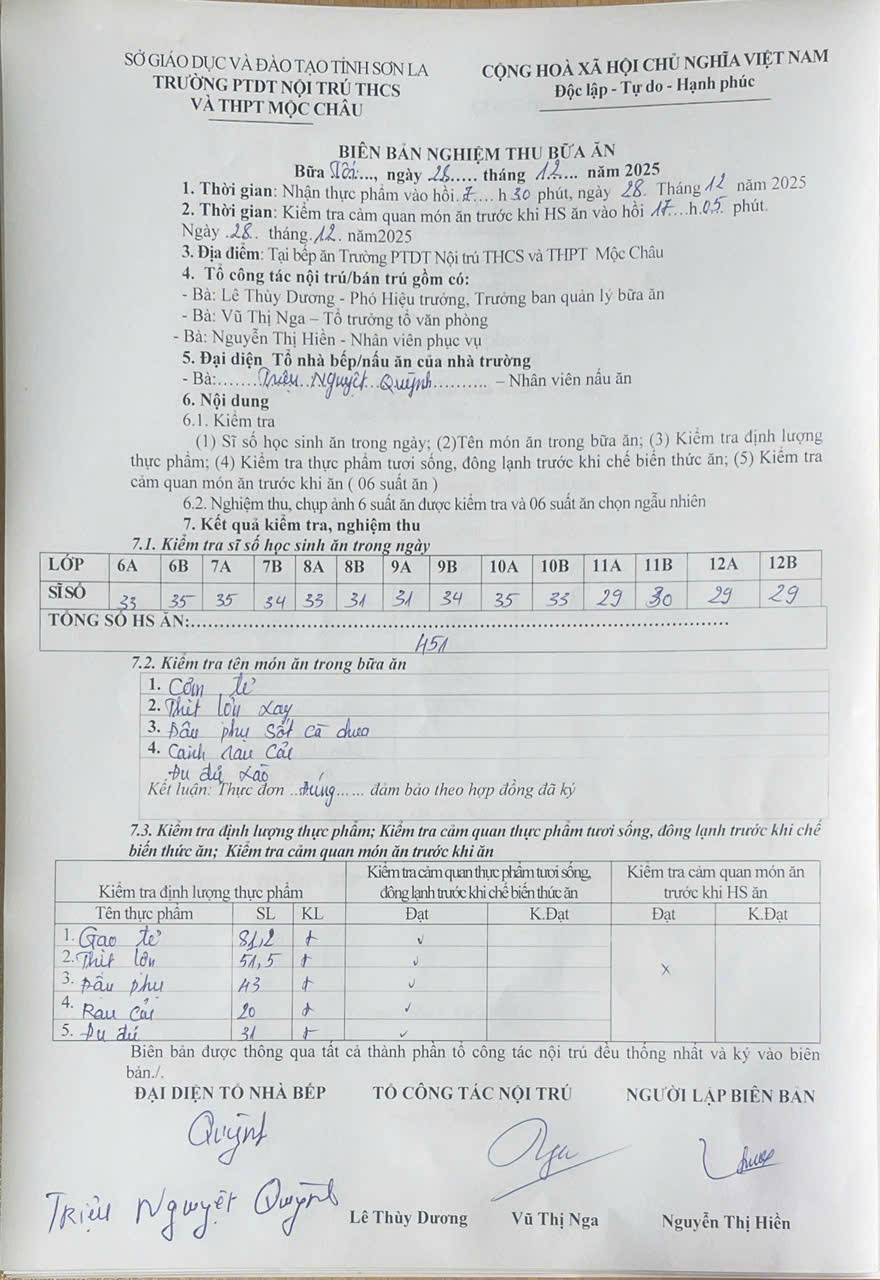 SỞ GIÁO DỤC VÀ ĐÀO TẠO TỈNH SƠN LA
TRƯỜNG PTDT NỘI TRÚ THCS
VÀ THPT MỘC CHÂU
CỘNG HOÀ XÃ HỘI CHỦ NGHĨA VIỆT NAM
Độc lập - Tự do - Hạnh phúc
BIÊN BẢN NGHIỆM THU BỮA ĂN
Bữa Tối..., ngày 28..... tháng 12... năm 2025
1. Thời gian: Nhận thực phẩm vào hồi 7.... h 30 phút, ngày 28. Tháng 12 năm 2025
2. Thời gian: Kiểm tra cảm quan món ăn trước khi HS ăn vào hồi 17...h.05 phút.
Ngày 28.. tháng 12. năm2025
3. Địa điểm: Tại bếp ăn Trường PTDT Nội trú THCS và THPT Mộc Châu
4. Tổ công tác nội trú/bán trú gồm có:
- Bà: Lê Thùy Dương - Phó Hiệu trưởng, Trưởng ban quản lý bữa ăn
- Bà: Vũ Thị Nga – Tổ trưởng tổ văn phòng
- Bà: Nguyễn Thị Hiền - Nhân viên phục vụ
5. Đại diện Tổ nhà bếp/nấu ăn của nhà trường
- Bà:.......Triệu Nguyệt Quỳnh.......... – Nhân viên nấu ăn
6. Nội dung
6.1. Kiểm tra
(1) Sĩ số học sinh ăn trong ngày; (2)Tên món ăn trong bữa ăn; (3) Kiểm tra định lượng
thực phẩm; (4) Kiểm tra thực phẩm tươi sống, đông lạnh trước khi chế biến thức ăn; (5) Kiểm tra
cảm quan món ăn trước khi ăn ( 06 suất ăn )
6.2. Nghiệm thu, chụp ảnh 6 suất ăn được kiểm tra và 06 suất ăn chọn ngẫu nhiên
7. Kết quả kiểm tra, nghiệm thu
7.1. Kiểm tra sĩ số học sinh ăn trong ngày
LỚP 6A 6B 7A 7B 8A 8B 9A 9B 10A 10B 11A 11B 12A 12B
SĨ SỐ 33 35 35 34 33 31 31 34 35 33 29 30 29 29
TỔNG SỐ HS ĂN:..........
451
7.2. Kiểm tra tên món ăn trong bữa ăn
1. Cơm tẻ
2. Thịt lợn xay
3. Đậu phụ sốt cà chua
4. Canh rau cải
Đu đủ xào
Kết luận: Thực đơn ..đúng...... đảm bảo theo hợp đồng đã ký
7.3. Kiểm tra định lượng thực phẩm; Kiểm tra cảm quan thực phẩm tươi sống, đông lạnh trước khi chế
biến thức ăn; Kiểm tra cảm quan món ăn trước khi ăn
Kiểm tra định lượng thực phẩm
Kiểm tra cảm quan thực phẩm tươi sống,
đông lạnh trước khi chế biến thức ăn
Kiểm tra cảm quan món ăn
trước khi HS ăn
Tên thực phẩm SL KL Đạt K.Đạt Đạt K.Đạt
1. Gạo tẻ 81,2 + ✓
2. Thịt lợn 51,5 + ✓
x
3. Đậu phụ 43 + ✓
4. Rau cải 20 + ✓
5. Đu đủ 31 + ✓
Biên bản được thông qua tất cả thành phần tổ công tác nội trú đều thống nhất và ký vào biên
bản./.
ĐẠI DIỆN TỔ NHÀ BẾP TỔ CÔNG TÁC NỘI TRÚ NGƯỜI LẬP BIÊN BẢN
Quỳnh Nga
Triệu Nguyệt Quỳnh
Lê Thùy Dương Vũ Thị Nga Nguyễn Thị Hiền